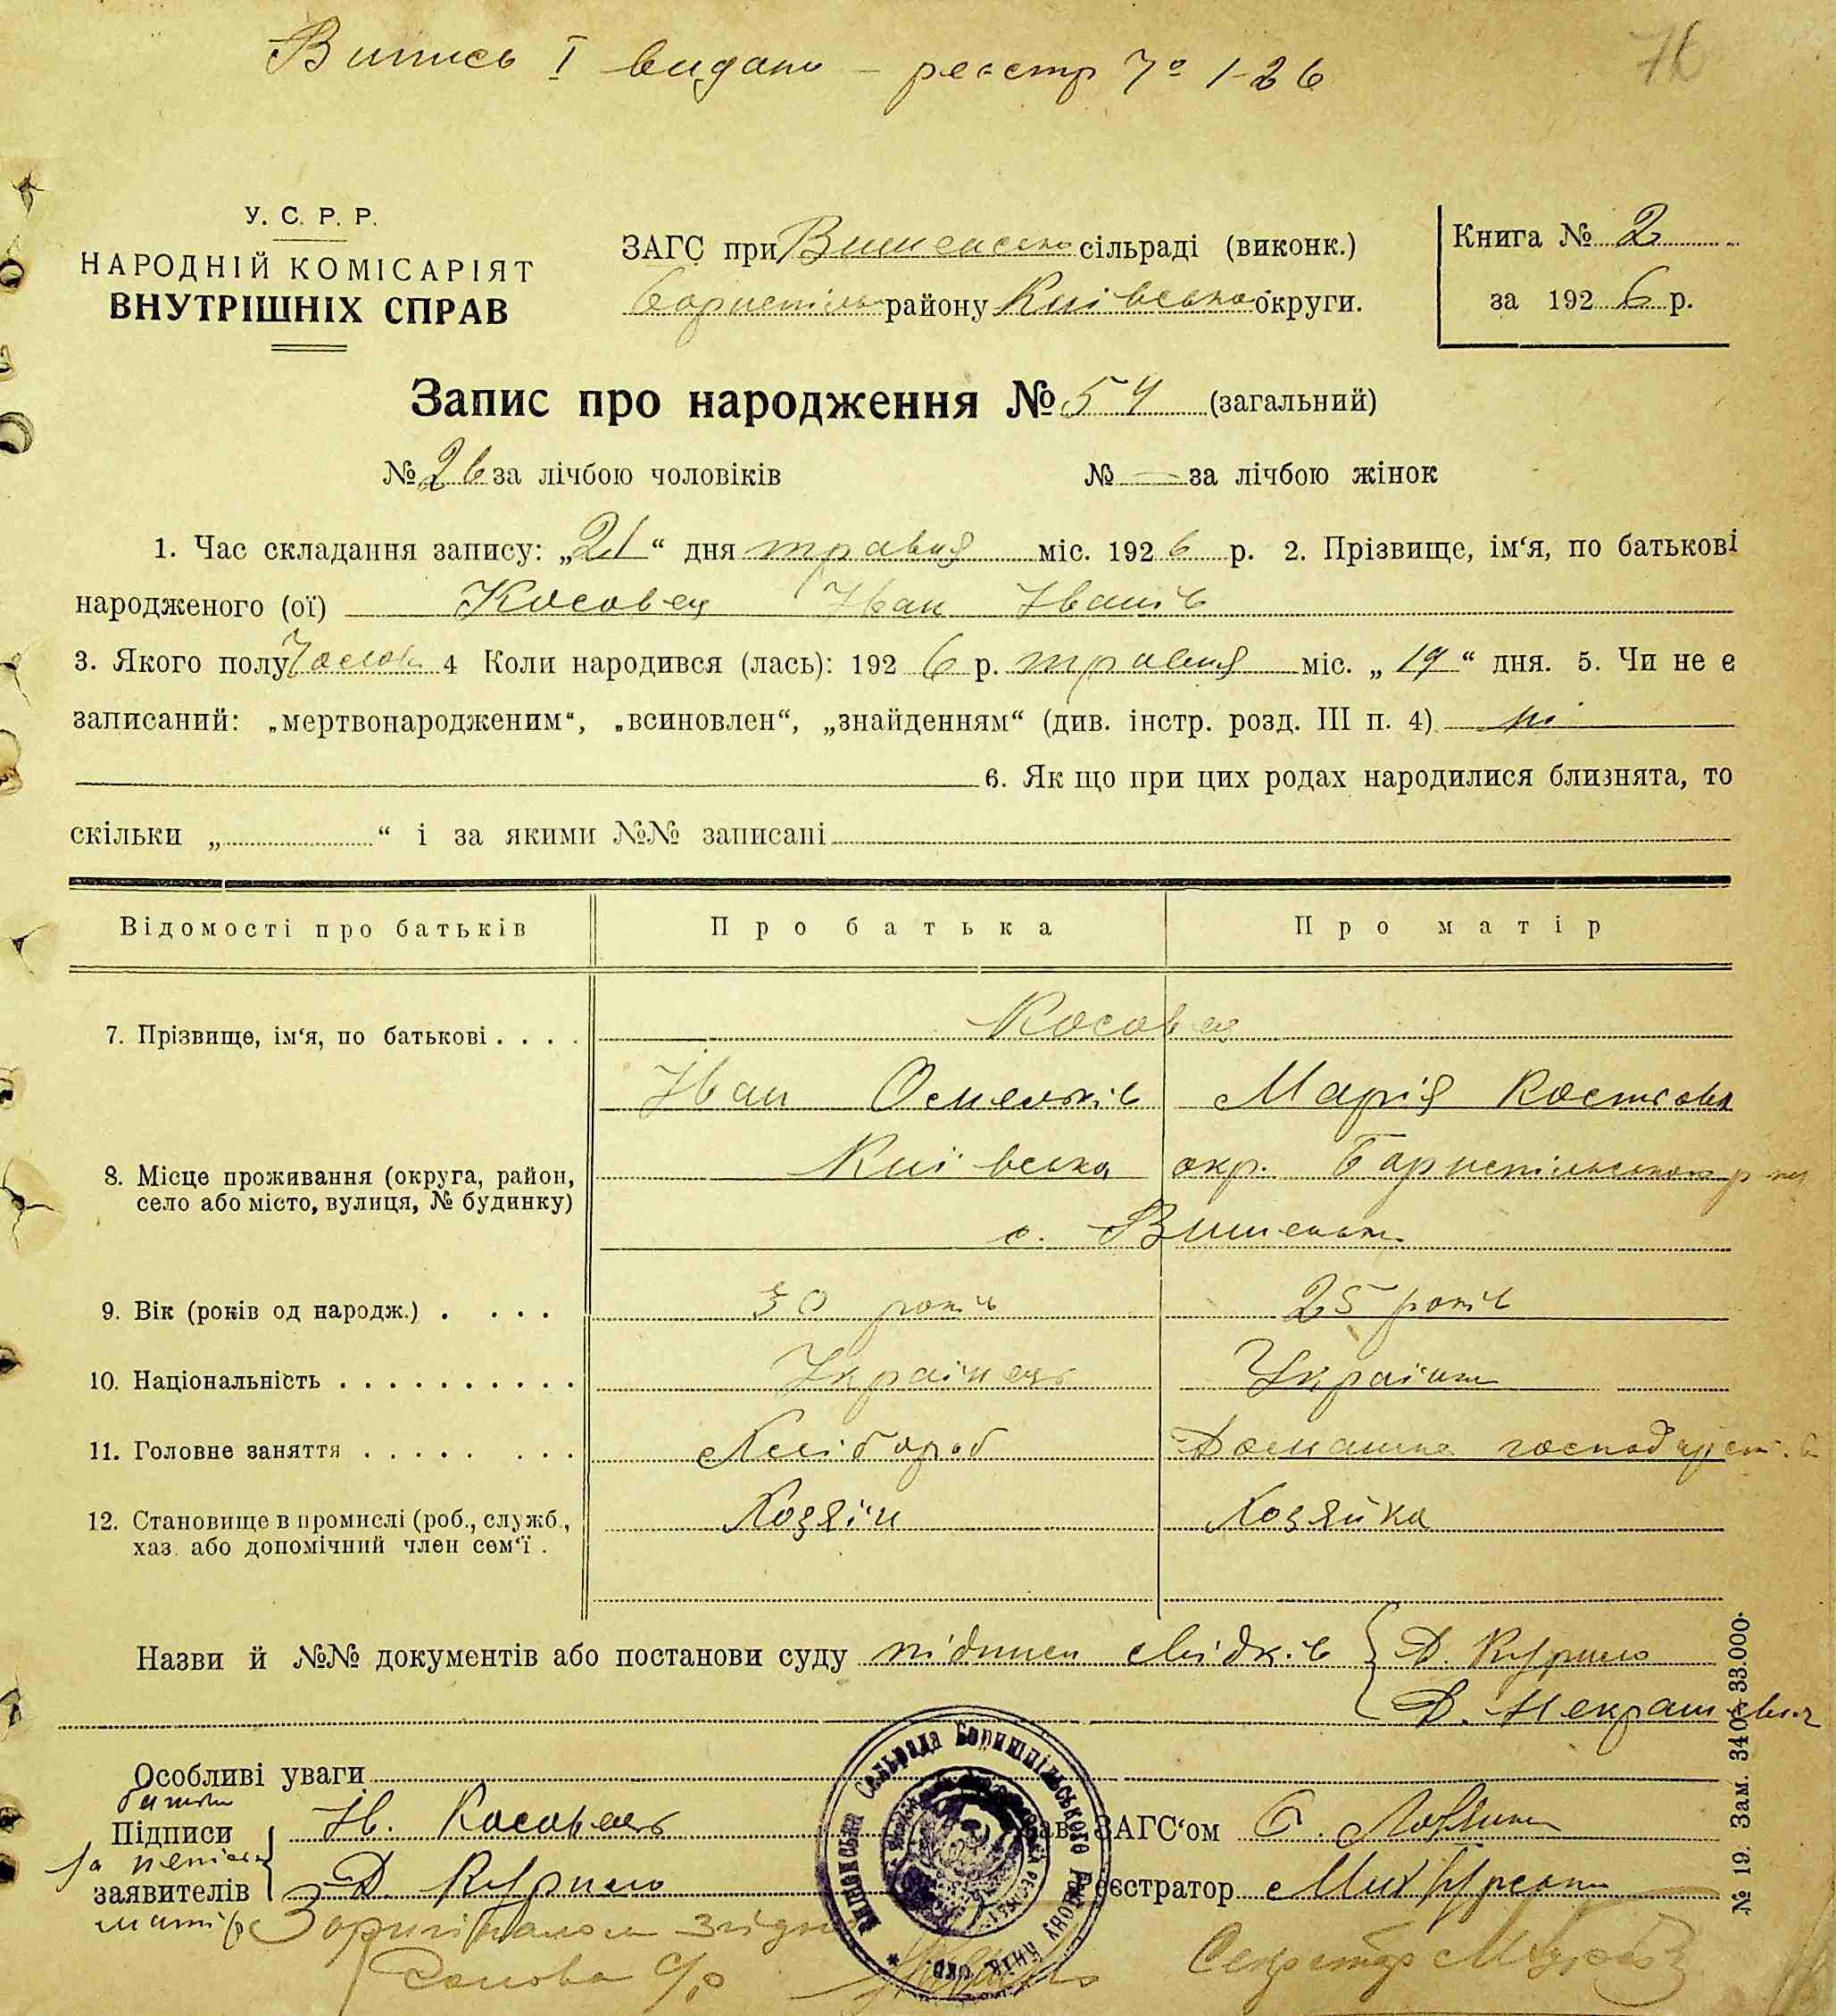 Випись І видано – реєстр № 1-26
76
У. С. Р. Р.
НАРОДНІЙ КОМІСАРІЯТ
ВНУТРІШНІХ СПРАВ
ЗАГС при Вишенськ сільраді (виконк.)
Бориспіль району Київсько округи.
Книга № 2
за 1926 р.
Запис про народження № 54 (загальний)
№ 26 за лічбою чоловіків № — за лічбою жінок
1. Час складання запису: „21“ дня травня міс. 1926 р. 2. Прізвище, ім‘я, по батькові
народженого (ої) Косовец Іван Іванів
3. Якого полу Чолов 4 Коли народився (лась): 1926 р. травня міс. „19“ дня. 5. Чи не є
записаний: „мертвонародженим“, „всиновлен“, „знайденням“ (див. інстр. розд. III п. 4) ні
6. Як що при цих родах народилися близнята, то
скільки „ “ і за якими №№ записані
Відомості про батьків Про батька Про матір
7. Прізвище, ім‘я, по батькові . . . . Косовец
Іван Омельків Марія Костьова
8. Місце проживання (округа, район, Київська окр. Бориспільського р-ну
село або місто, вулиця, № будинку)
с. Вишеньки
9. Вік (років од народж.) . . . . 30 років 25 років
10. Національність . . . . . . . . . . Українець Українк
11. Головне заняття . . . . . . . . Хлібороб Домашнє господарст.
12. Становище в промислі (роб., служб., Хозяїн Хозяйка
хаз. або допомічний член сем‘ї .
Назви й №№ документів або постанови суду підписи свідків Д. Курило
Д. Некрашевич
Особливі уваги
батьки
Підписи Ів. Косовець Зав. ЗАГС‘ом
За неписьм
заявителів Д. Курило Реєстратор
матір З оригіналом згідно
Голова С/р Секретар
Сельрада Бориспільського Району Київ. окр.
№ 19. Зам. 340—33.000.